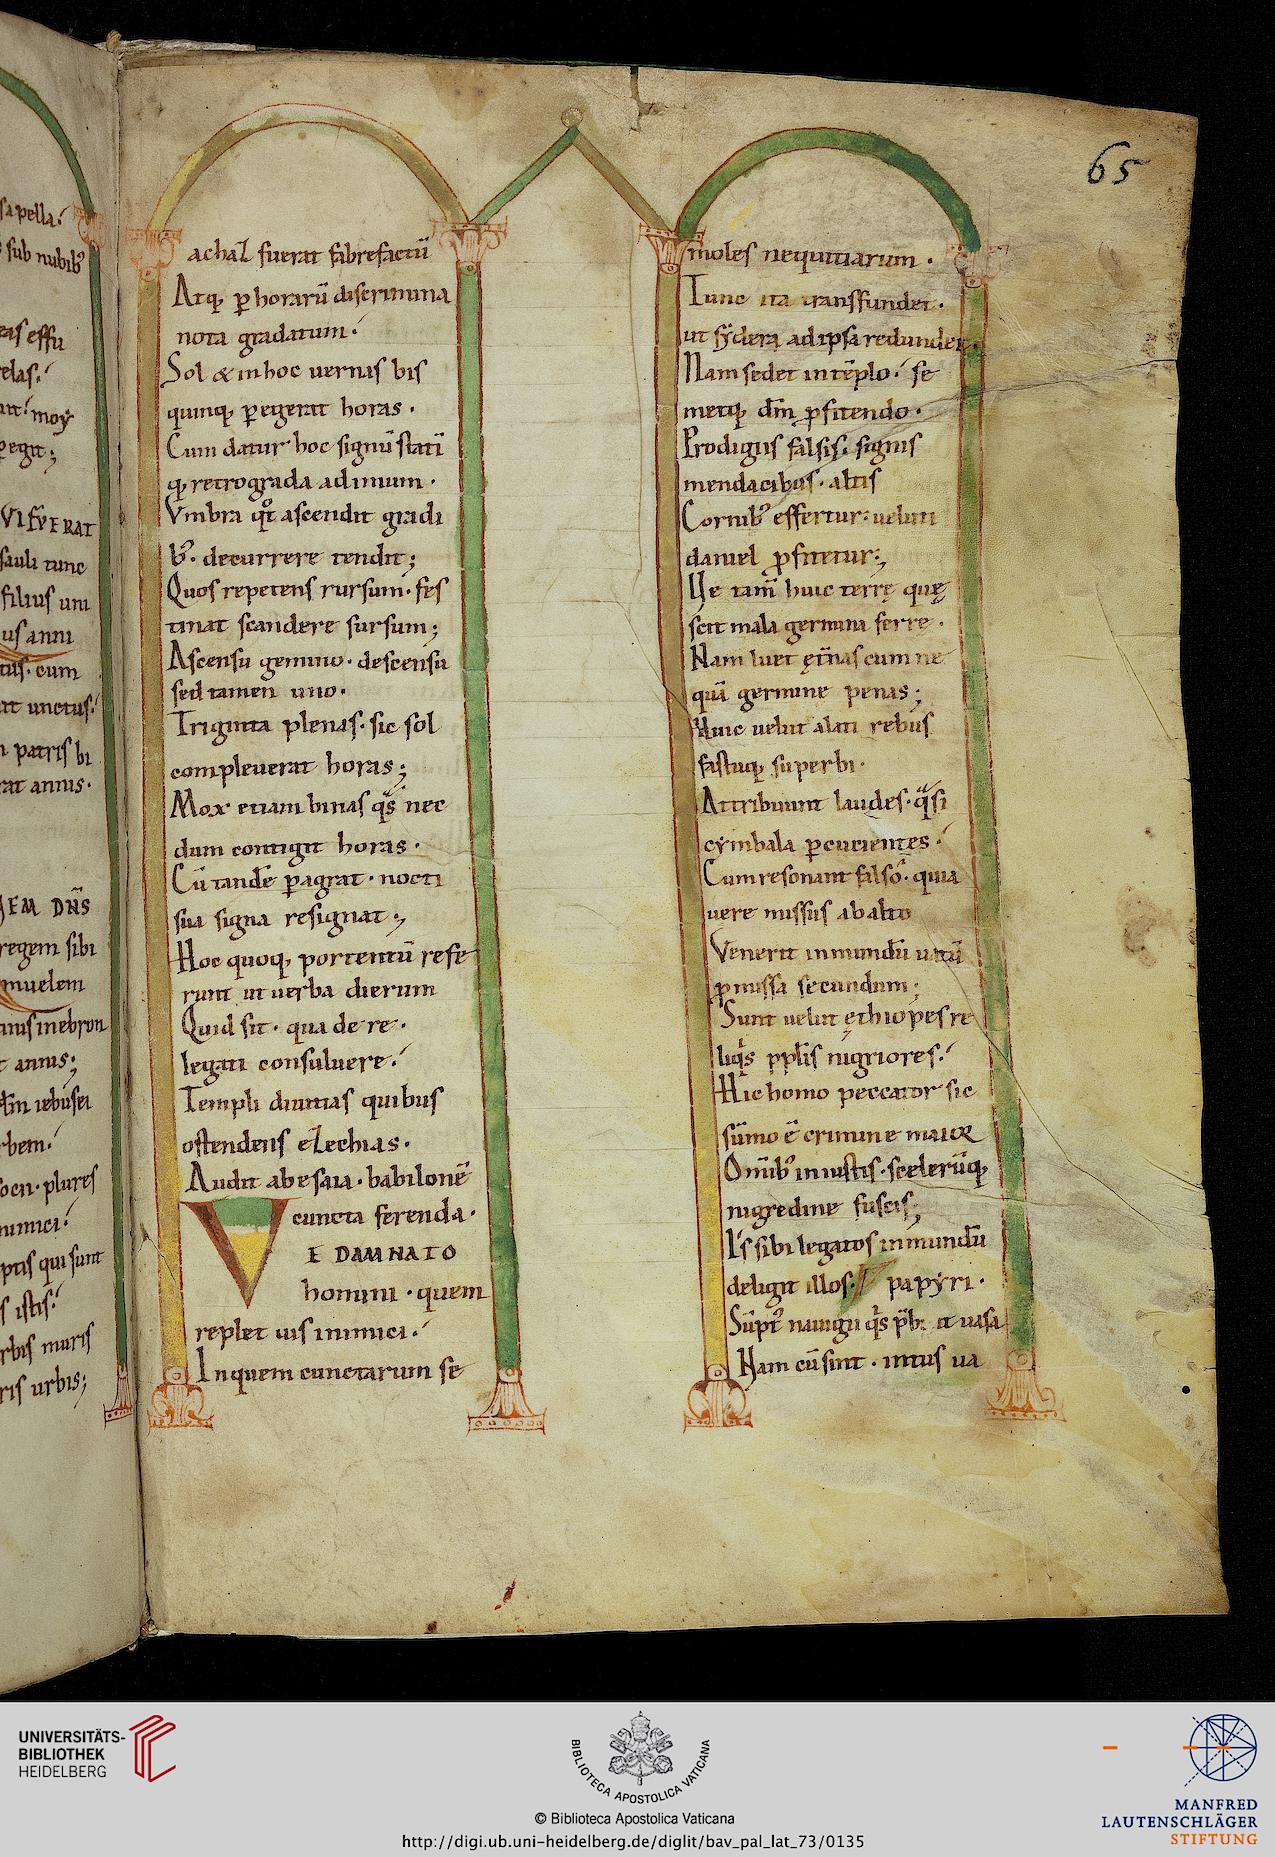 sapella.
sub nubib᷒
eas effu
elas.
moẏ
pegit;
VI FVERAT
sauli tunc
filius uni
us anni
tus. cum
at unctus.
patris bi
rat annis.
EM DN̄S
regem sibi
muelem
annis in ebron
annis;
iebusei
rbem.
plures
inimici.
ptis qui sunt
s istis.
rbis muris
ris urbis;
65
achaz fuerat fabrefactū
Atq; ꝑ horarū discrimina
nota gradatum.
Sol & in hoc uernis bis
quinq; ꝑegerat horas.
Cum datur hoc signū statī
q; retrograda ad imum.
Vmbra qͦt ascendit gradi
b᷒. decurrere tendit;
Quos repetens rursum. fes
tinat scandere sursum;
Ascensu gemino. descensu
sed tamen uno.
Triginta plenas. sic sol
compleuerat horas;
Mox etiam binas q̄s nec
dum contigit horas.
Cū tandē ꝑagrat. nocti
sua signa resignat;
Hoc quoq; portentū refe
runt ut uerba dierum
Quid sit. qua de re.
legati consuluere.
Templi diuitias quibus
ostendens ezechias.
Audit ab esaia. babilonē
cuncta ferenda.
VE DAMNATO
homini. quem
replet uis inimici.
In quem cunctarum se
moles nequitiarum.
Tunc ita transfundet.
ut sẏdera ad ipsa redundet.
Nam sedet in tēplo. se
metq; dm̄ ꝓfitendo.
Prodigiis falsis. signis
mendacibus. altis
Cornib᷒ effertur. ueluti
daniel ꝓfitetur;
Ve tam̄ huic terrę quę
scit mala germina ferre.
Nam luet ęt̄nas cum ne
quā germine penas;
Huic uelut alati rebus
fastuq; superbi.
Attribuunt laudes. q̄si
cẏmbala ꝑcutientes.
Cum resonant falso. quia
uere missus ab alto
Venerit in mundū
ꝓmissa secundum;
Sunt uelut ęthiopes re
liqͥs ppl̄is nigriores.
Hic homo peccator sic
sūmo ē crimine maior
Omib᷒ iniustis. scelerūq;
nigredine fuscis;
Is sibi legatos in mundū
deligit illos. papẏri.
nauigii qͥs uasa
Nam cū sint. intus ua
UNIVERSITÄTS-
BIBLIOTHEK
HEIDELBERG
BIBLIOTECA APOSTOLICA VATICANA
© Biblioteca Apostolica Vaticana
http://digi.ub.uni-heidelberg.de/diglit/bav_pal_lat_73/0135
MANFRED
LAUTENSCHLÄGER
STIFTUNG